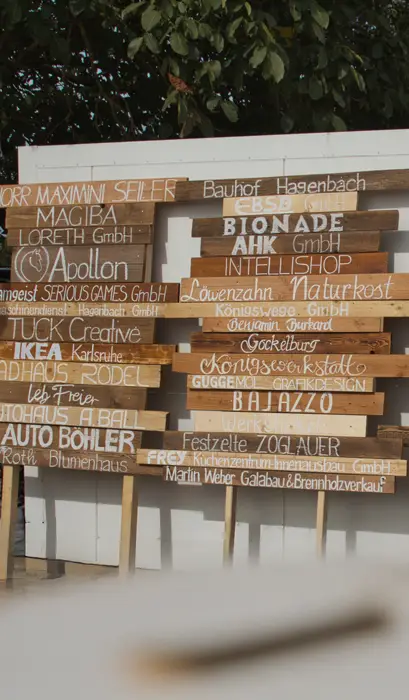 ORR MAXIMINI SEILER
MAGIBA
LORETH GmbH
Apollon
amgeist SERIOUS GAMES GmbH
aschinendienst Hagenbach GmbH
TUCK Creative
IKEA Karlsruhe
ADHAUS RÖDEL
leb Freier
AUTOHAUS ALBALL
AUTO BÖHLER
Roth Blumenhaus
Bauhof Hagenbach
EBSD GbR
BIONADE
AHK GmbH
INTELLISHOP
Löwenzahn Naturkost
Königswege GmbH
Benjamin Burkard
Gockelburg
Königswerkstatt
GUGGEMOL GRAFIKDESIGN
BAJAZZO
Festzelte ZÖGLAUER
FREY Küchenzentrum-Innenausbau GmbH
Martin Weber Galabau & Brennholzverkauf